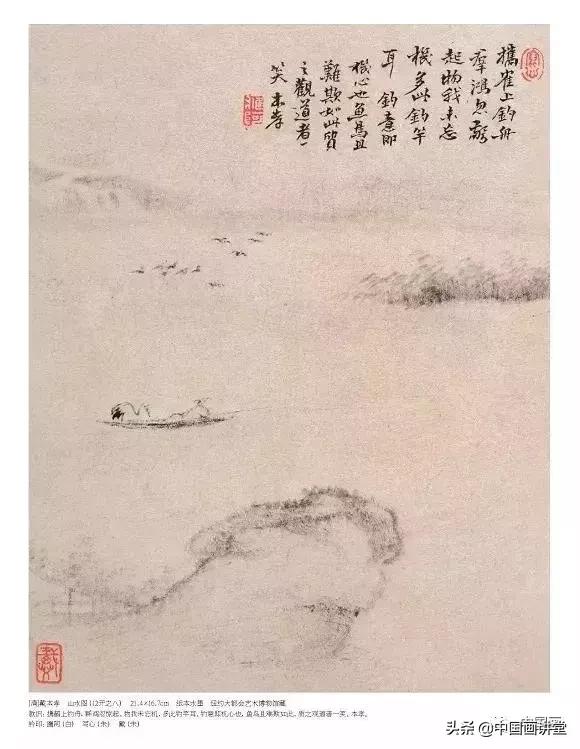 攜隺上釣舟
羣鴻忽驚
起物我未忘
機多此釣竿
耳 釣意即
機心也魚鳥且
難欺如此質
之觀道者一
笑 本孝
[清]戴本孝 山水图(12开之八) 21.4×16.7cm 纸本水墨 纽约大都会艺术博物馆藏
款识:携鹤上钓舟,群鸿忽惊起。物我未忘机,多此钓竿耳。钓意即机心也,鱼鸟且难欺如此,质之观道者一笑。本孝。
钤印:鹰阿(白) 写心(朱) 戴(朱)
头条 @中国画讲堂